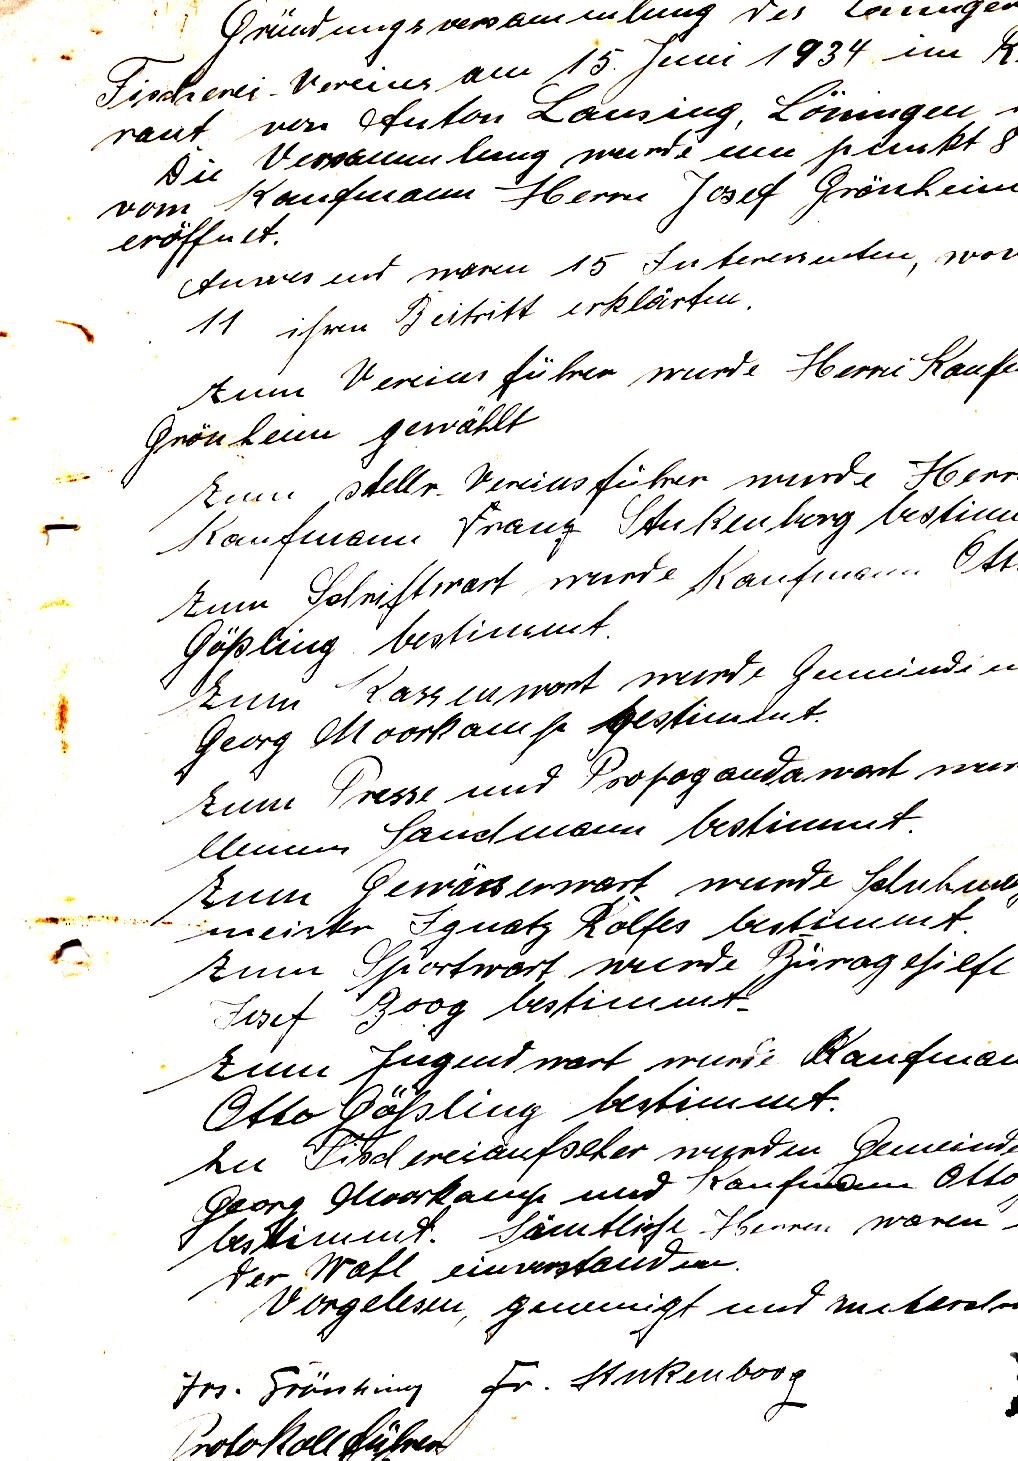 Gründungsversammlung des Löninger
Fischerei-Vereins am 15. Juni 1934 im R
rant von Anton Lansing, Löningen
Die Versammlung wurde um punkt 8
vom Kaufmann Herrn Josef Grönheim
eröffnet.
Anwesend waren 15 Interessenten, wov
11 ihren Beitritt erklärten.
Zum Vereinsführer wurde Herrn Kaufm
Grönheim gewählt
Zum stellv. Vereinsführer wurde Herr
Kaufmann Franz Stukenborg bestimm
Zum Schriftwart wurde Kaufmann Otto
Gößling bestimmt.
Zum Kassenwart wurde Gemeindee
Georg Moorkamp bestimmt.
Zum Presse und Propagandawart wur
Clemens Sandmann bestimmt.
Zum Gewässerwart wurde Schuhm
meister Ignatz Rolfes bestimmt.
Zum Sportwart wurde Bürogehilfe
Josef Boog bestimmt.
Zum Jugendwart wurde Kaufmann
Otto Gößling bestimmt.
Zu Fischereiaufseher wurden Gemeinde
Georg Moorkamp und Kaufmann Otto
bestimmt. Sämtliche Herren waren
der Wahl einverstanden.
Vorgelesen, genemigt und unterschr
Jos. Grönheim Fr. Stukenborg
Protokollführer